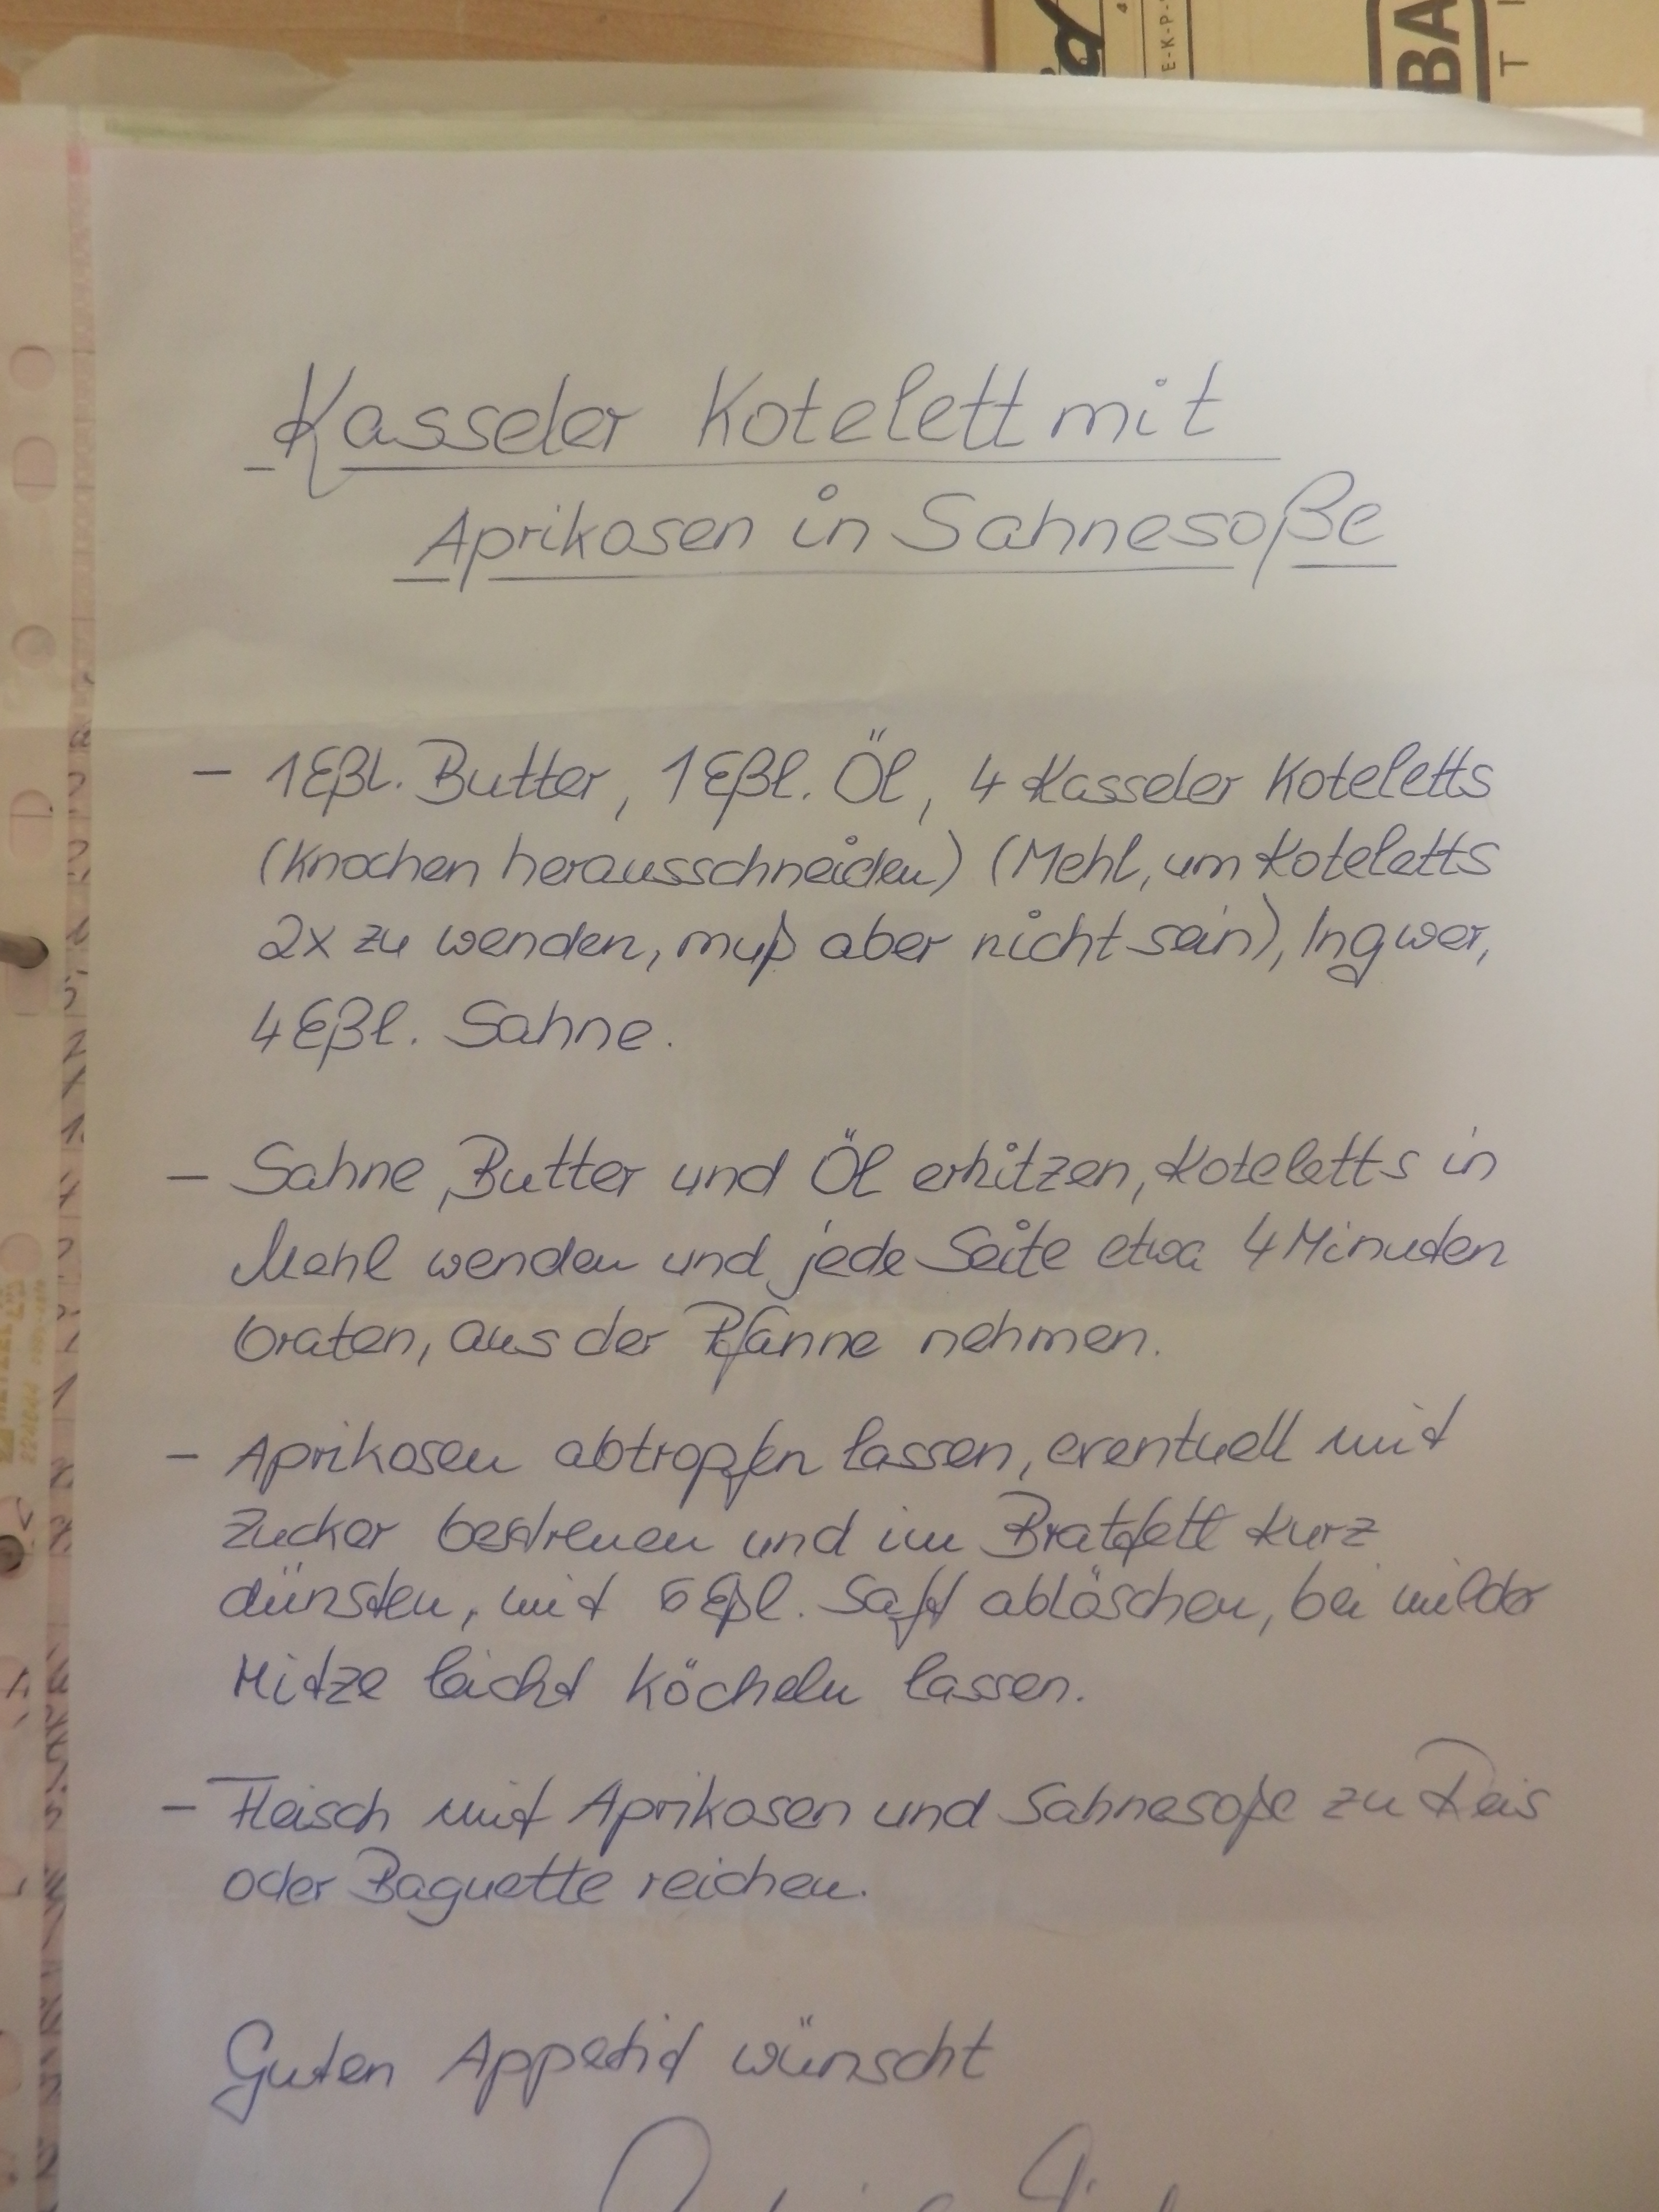 E-K-P-
BA
T
Kasseler Kotelett mit
Aprikosen in Sahnesoße
- 1 Eßl. Butter, 1 Eßl. Öl, 4 Kasseler Koteletts
(Knochen herausschneiden) (Mehl, um Koteletts
2x zu wenden, muß aber nicht sein), Ingwer,
4 Eßl. Sahne.
- Sahne, Butter und Öl erhitzen, Koteletts in
Mehl wenden und jede Seite etwa 4 Minuten
braten, aus der Pfanne nehmen.
- Aprikosen abtropfen lassen, eventuell mit
Zucker bestreuen und im Bratfett kurz
dünsten, mit 6 Eßl. Saft ablöschen, bei milder
Hitze leicht köcheln lassen.
- Fleisch mit Aprikosen und Sahnesoße zu Reis
oder Baguette reichen.
Guten Appetit wünscht